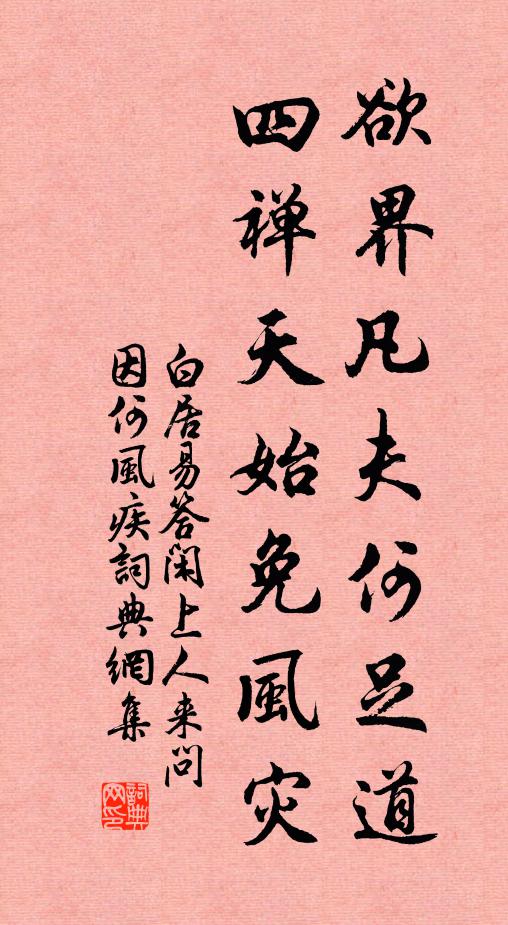 欲界凡夫何足道
四禅天始免風灾
白居易答閑上人来問
因何風疾詞典網集
詞典网印